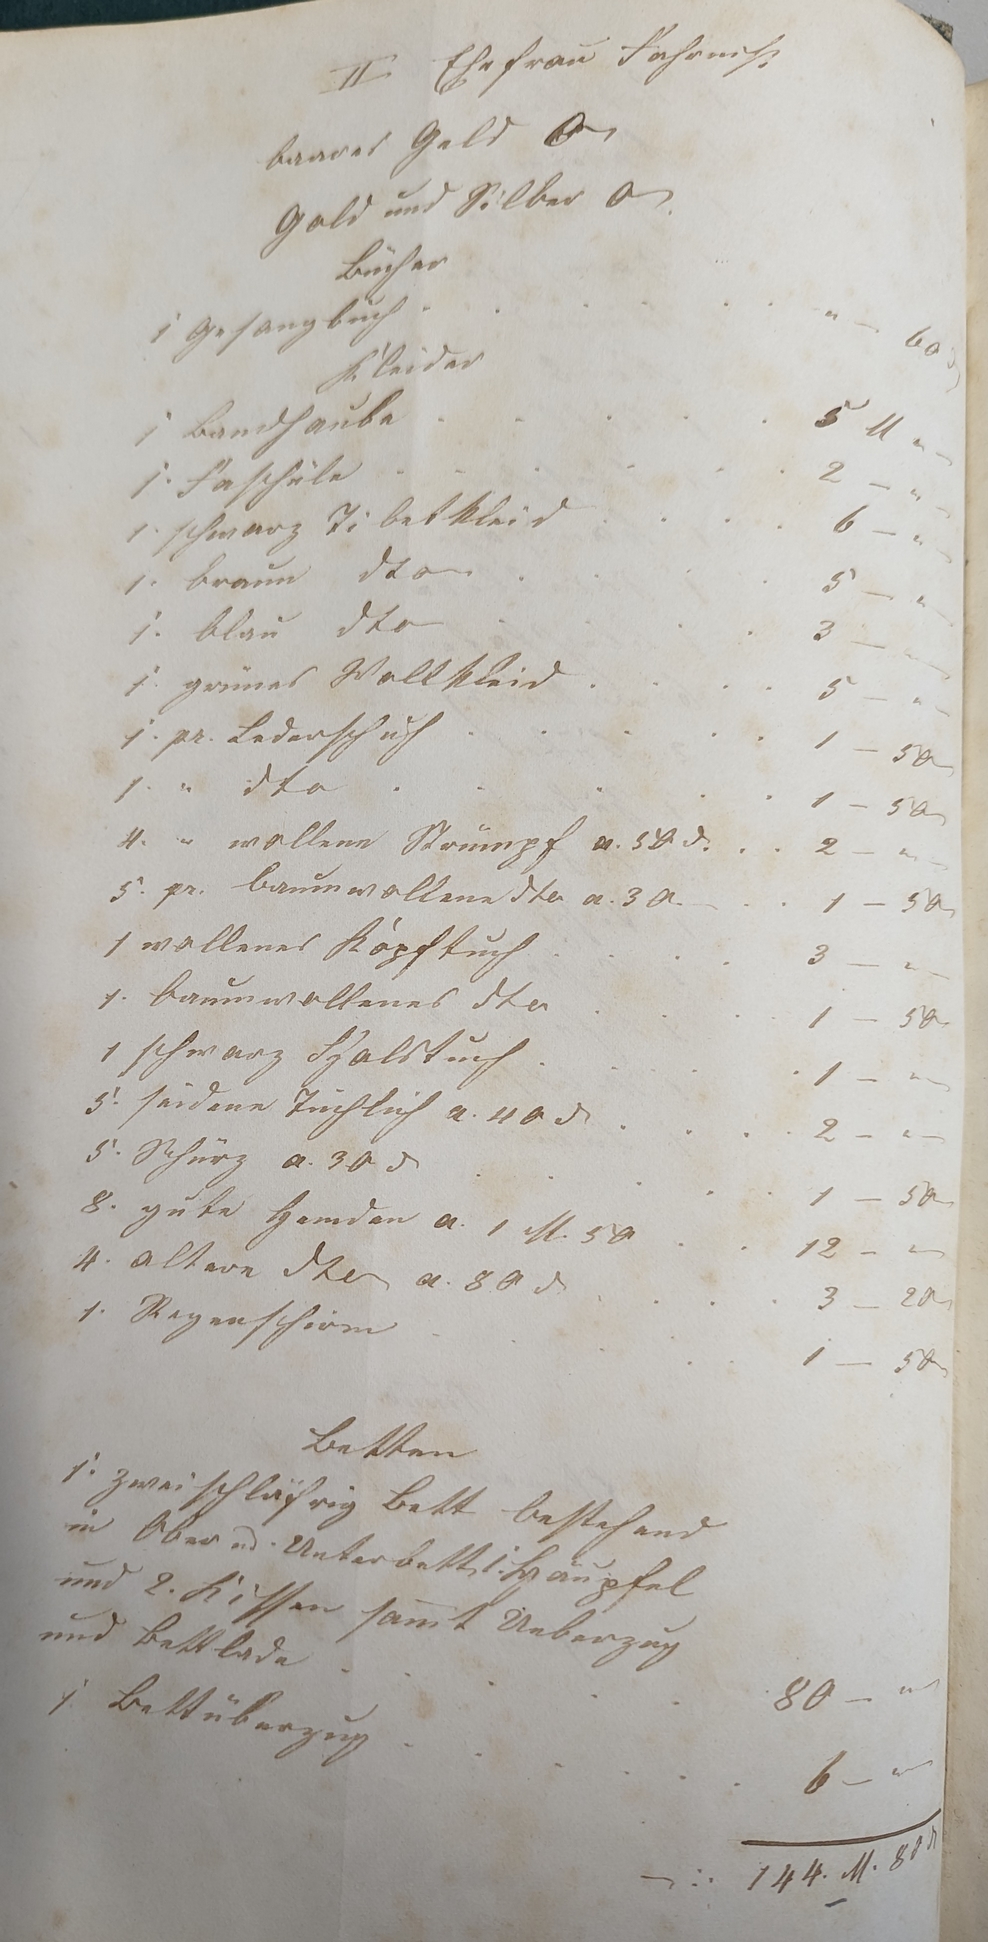 II Ehefrau Fahrniß.
baares Geld 0
Gold und Silber 0
Bücher
1 Gesangbuch . . . . . " — 60 d
Kleider
1 Bandhaube . . . . . 5 M "
1. Faschüle . . . . . 2 — "
1. schwarz Tibetkleid . . . . 6 — "
1. braun dto . . . 5 — "
1. blau dto . . . 3 — "
1. grünes Wollkleid . . . . 5 — "
1. pr. Lederschuh . . . . . 1 — 50
1. " dto . . . . . 1 — 50
4. " wollene Strümpf a. 50 d. . . 2 — "
5. pr. baumwollene dto a. 30. . . 1 — 50
1 wollenes Kopftuch . . . . 3 — "
1. baumwollenes dto . . . 1 — 50
1 schwarz Halstuch . . . . 1 — "
5. seidene Tüchlich a. 40 d . . . . 2 — "
5. Schürz a. 30 d . . . . 1 — 50
8. gute Hemden a. 1 M. 50 . . 12 — "
4. altere dto a. 80 d . . . . 3 — 20
1. Regenschirm . . . . 1 — 50
Betten
1. zweischläfrig Bett bestehend
in Ober u. Unterbett, 1. Häupfel
und 2. Kissen samt Ueberzug
und Bettlade . . . . . 80 — "
1 Bettüberzug . . . . . . 6 — "
144. M. 80 d